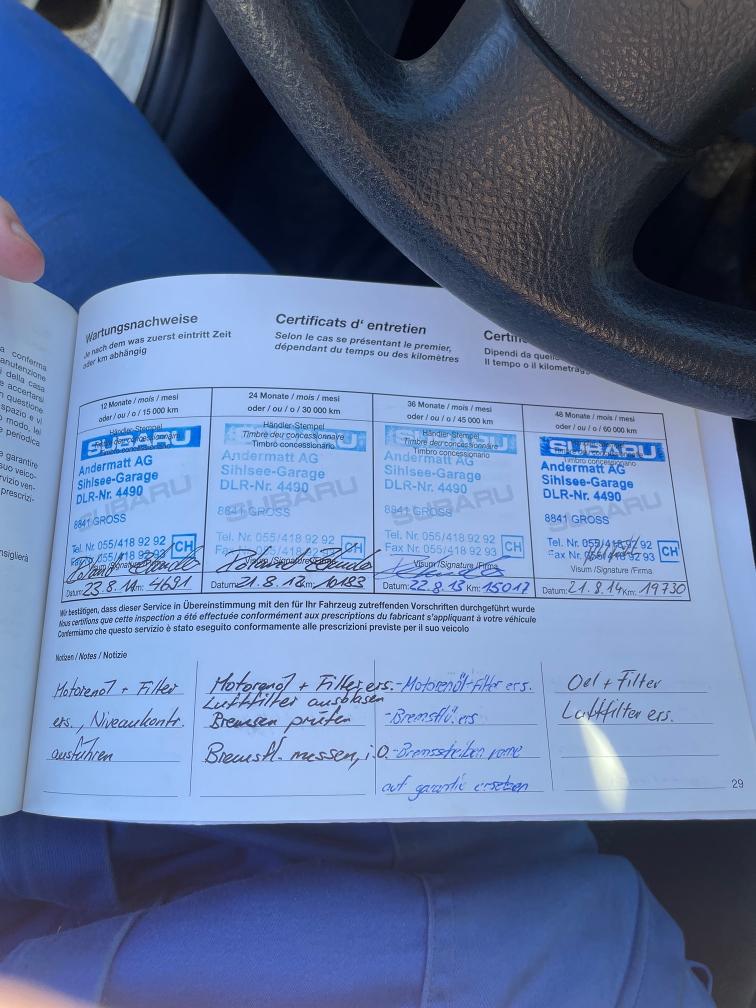 a conferma
anutenzione
i della casa
e accertarsi
n questione
spazio e vi
o modo, lei
e periodica
e garantire
suo veico-
rvizio ven-
prescrizi-
nsiglierà
Wartungsnachweise
Je nach dem was zuerst eintritt Zeit
oder km abhängig
Certificats d' entretien
Selon le cas se présentant le premier,
dépendant du temps ou des kilomètres
Certific
Dipendi da quello
Il tempo o il kilometrag
12 Monate / mois / mesi
oder / ou / o / 15 000 km
Händler-Stempel
Timbre der concessionnaire
Timbro concessionario
SUBARU
Andermatt AG
Sihlsee-Garage
DLR-Nr. 4490
8841 GROSS
Tel. Nr. 055/418 92 92
Fax Nr. 055/418 92 93
CH
Visum /Signature /Firma
Datum: 23.8.11 Km: 4691
24 Monate / mois / mesi
oder / ou / o / 30 000 km
Händler-Stempel
Timbre der concessionnaire
Timbro concessionario
SUBARU
Andermatt AG
Sihlsee-Garage
DLR-Nr. 4490
8841 GROSS
Tel. Nr. 055/418 92 92
Fax Nr. 055/418 92 93
CH
Visum /Signature/Firma
Datum: 21.8.12 Km: 10183
36 Monate / mois / mesi
oder / ou / o / 45 000 km
Händler-Stempel
Timbre der concessionnaire
Timbro concessionario
SUBARU
Andermatt AG
Sihlsee-Garage
DLR-Nr. 4490
8841 GROSS
Tel. Nr. 055/418 92 92
Fax Nr. 055/418 92 93
CH
Visum /Signature /Firma
Datum: 22.8.13 Km: 15017
48 Monate / mois / mesi
oder / ou / o / 60 000 km
SUBARU
Timbro concessionario
Andermatt AG
Sihlsee-Garage
DLR-Nr. 4490
8841 GROSS
Tel. Nr. 055/418 92 92
Fax Nr. 055/418 92 93
CH
Visum /Signature /Firma
Datum: 21.8.14 Km: 19730
Wir bestätigen, dass dieser Service in Übereinstimmung mit den für Ihr Fahrzeug zutreffenden Vorschriften durchgeführt wurde
Nous certifions que cette inspection a été effectuée conformément aux prescriptions du fabricant s'appliquant à votre véhicule
Confermiamo che questo servizio è stato eseguito conformamente alle prescrizioni previste per il suo veicolo
Notizen / Notes / Notizie
Motorenöl + Filter
ers., Niveaukontr.
ausführen
Motorenöl + Filter ers.
Luftfilter ausblasen
Bremsen prüfen
Bremsfl. messen, i.O.
-Motorenöl+Filter ers.
-Bremsflü. ers
-Bremsscheiben vorne
auf garantie ersetzen
Oel + Filter
Luftfilter ers.
29